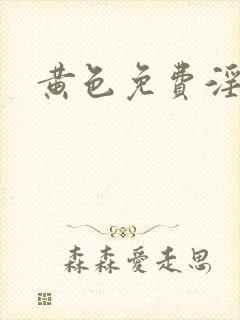 黄色免费淫
森森爱走思